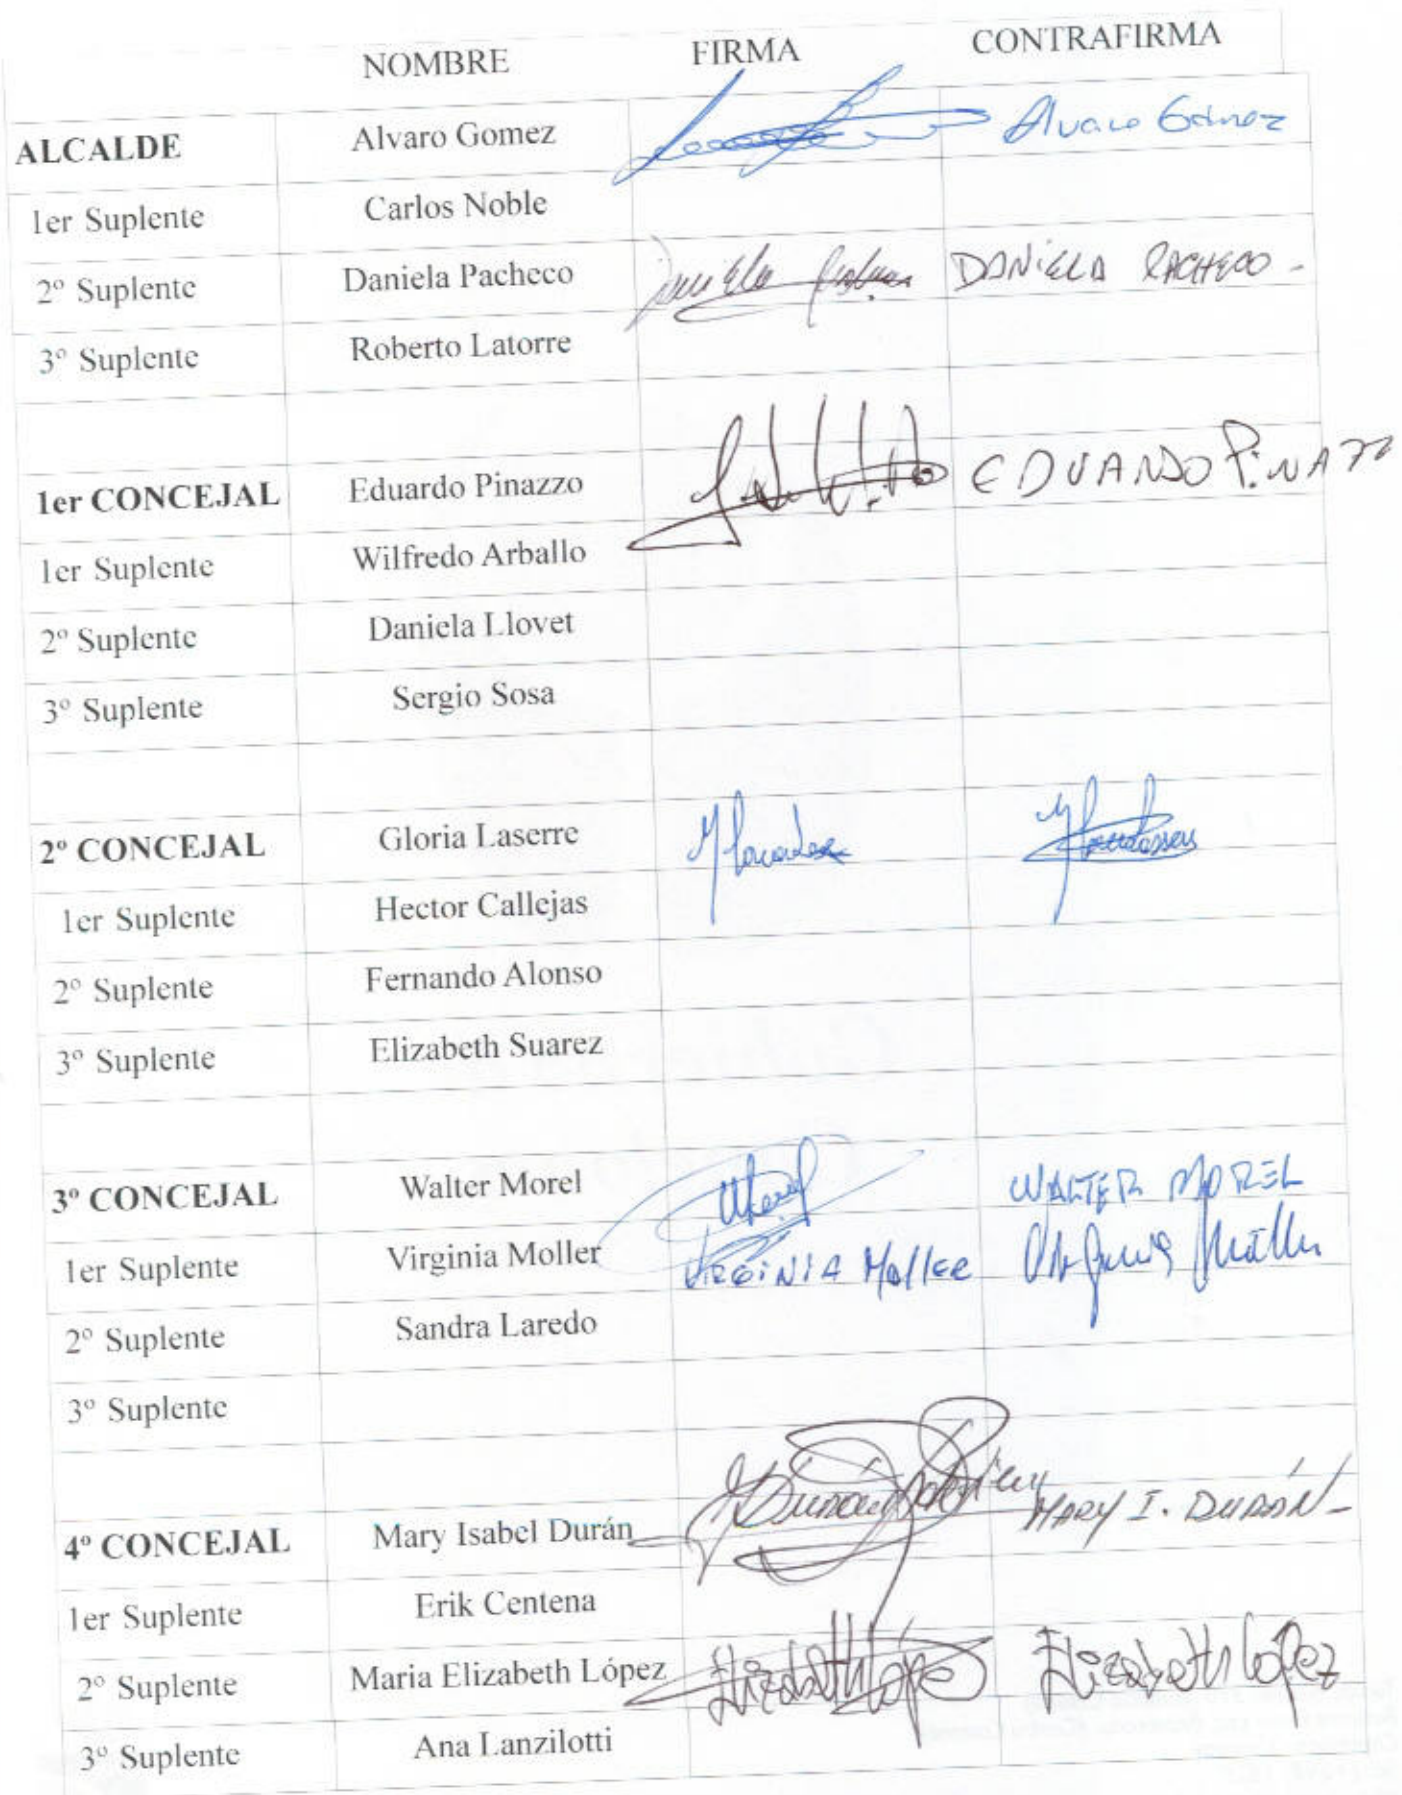 NOMBRE FIRMA CONTRAFIRMA
ALCALDE Alvaro Gomez Alvaro Gómez
1er Suplente Carlos Noble
2º Suplente Daniela Pacheco DANIELA PACHECO -
3º Suplente Roberto Latorre
1er CONCEJAL Eduardo Pinazzo EDUARDO PiNAZZ
1er Suplente Wilfredo Arballo
2º Suplente Daniela Llovet
3º Suplente Sergio Sosa
2º CONCEJAL Gloria Laserre
1er Suplente Hector Callejas
2º Suplente Fernando Alonso
3º Suplente Elizabeth Suarez
3º CONCEJAL Walter Morel WALTER MOREL
1er Suplente Virginia Moller VIRGINIA Moller Virginia Möller
2º Suplente Sandra Laredo
3º Suplente
4º CONCEJAL Mary Isabel Durán MARY I. DURÁN -
1er Suplente Erik Centena
2º Suplente Maria Elizabeth López Elizabeth López Elizabeth López
3º Suplente Ana Lanzilotti